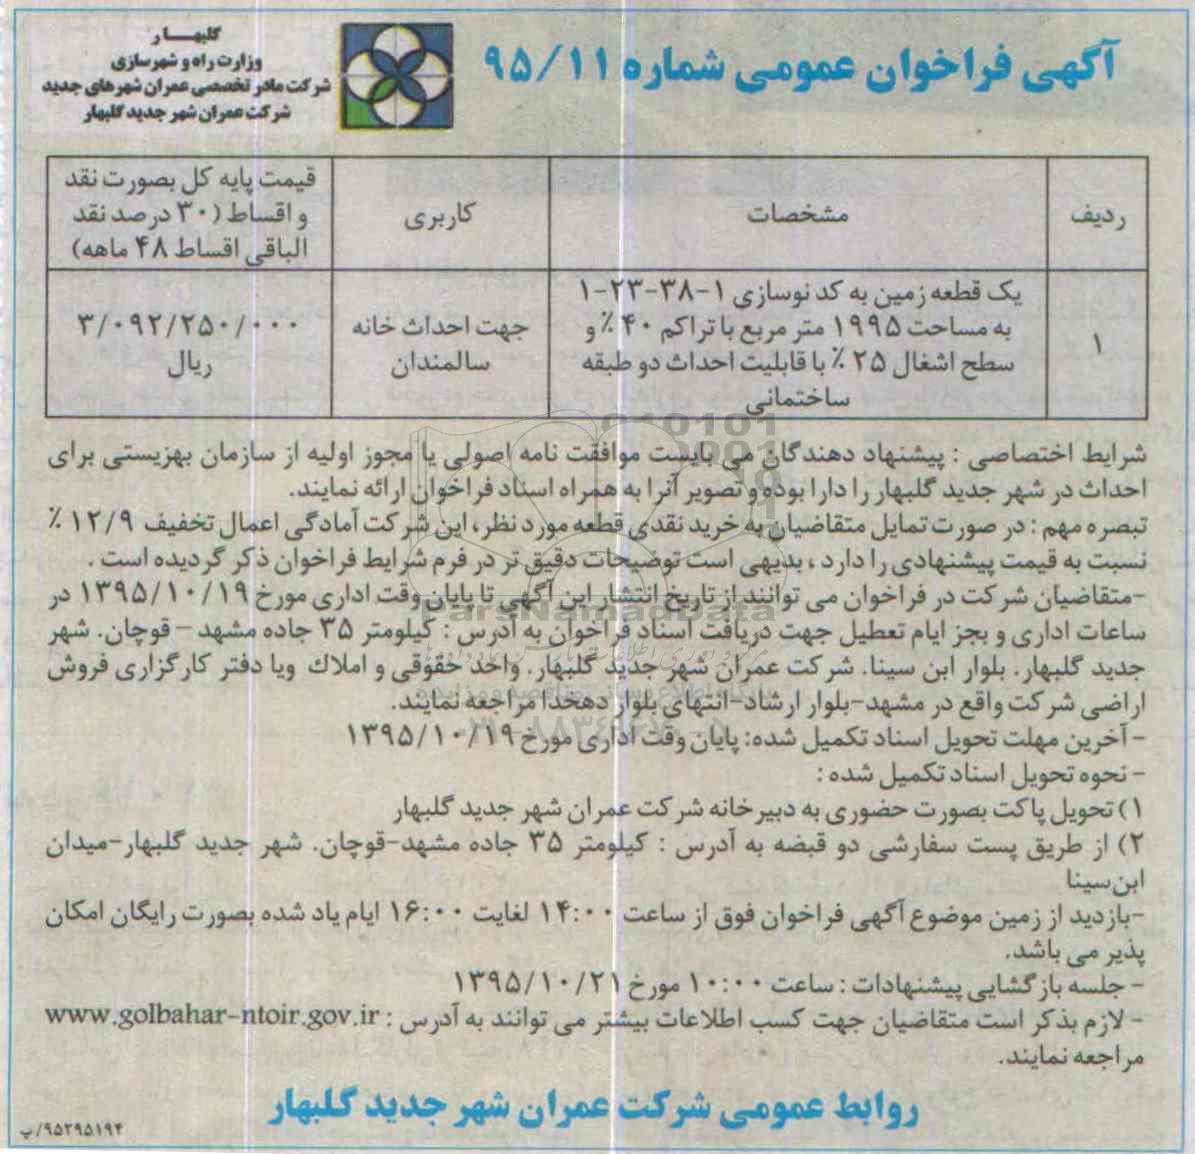 آگهی فراخوان عمومی شماره ۹۵/۱۱
گلبهار
وزارت راه و شهرسازی
شرکت مادر تخصصی عمران شهرهای جدید
شرکت عمران شهر جدید گلبهار
ردیف
مشخصات
کاربری
قیمت پایه کل بصورت نقد
و اقساط (۳۰ درصد نقد
الباقی اقساط ۴۸ ماهه)
۱
یک قطعه زمین به کد نوسازی ۱-۳۸-۲۳-۱
به مساحت ۱۹۹۵ متر مربع با تراکم ۴۰ ٪ و
سطح اشغال ۲۵ ٪ با قابلیت احداث دو طبقه
ساختمانی
جهت احداث خانه
سالمندان
۳/۰۹۲/۲۵۰/۰۰۰
ریال
شرایط اختصاصی : پیشنهاد دهندگان می بایست موافقت نامه اصولی یا مجوز اولیه از سازمان بهزیستی برای
احداث در شهر جدید گلبهار را دارا بوده و تصویر آنرا به همراه اسناد فراخوان ارائه نمایند.
تبصره مهم : در صورت تمایل متقاضیان به خرید نقدی قطعه مورد نظر، این شرکت آمادگی اعمال تخفیف ۱۲/۹ ٪
نسبت به قیمت پیشنهادی را دارد ، بدیهی است توضیحات دقیق تر در فرم شرایط فراخوان ذکر گردیده است .
-متقاضیان شرکت در فراخوان می توانند از تاریخ انتشار این آگهی تا پایان وقت اداری مورخ ۱۳۹۵/۱۰/۱۹ در
ساعات اداری و بجز ایام تعطیل جهت دریافت اسناد فراخوان به آدرس : کیلومتر ۳۵ جاده مشهد – قوچان. شهر
جدید گلبهار. بلوار ابن سینا. شرکت عمران شهر جدید گلبهار. واحد حقوقی و املاک ویا دفتر کارگزاری فروش
اراضی شرکت واقع در مشهد-بلوار ارشاد-انتهای بلوار دهخدا مراجعه نمایند.
- آخرین مهلت تحویل اسناد تکمیل شده: پایان وقت اداری مورخ ۱۳۹۵/۱۰/۱۹
- نحوه تحویل اسناد تکمیل شده :
۱) تحویل پاکت بصورت حضوری به دبیرخانه شرکت عمران شهر جدید گلبهار
۲) از طریق پست سفارشی دو قبضه به آدرس : کیلومتر ۳۵ جاده مشهد-قوچان. شهر جدید گلبهار-میدان
ابن‌سینا
-بازدید از زمین موضوع آگهی فراخوان فوق از ساعت ۱۴:۰۰ لغایت ۱۶:۰۰ ایام یاد شده بصورت رایگان امکان
پذیر می باشد.
- جلسه بازگشایی پیشنهادات : ساعت ۱۰:۰۰ مورخ ۱۳۹۵/۱۰/۲۱
- لازم بذکر است متقاضیان جهت کسب اطلاعات بیشتر می توانند به آدرس : www.golbahar-ntoir.gov.ir
مراجعه نمایند.
روابط عمومی شرکت عمران شهر جدید گلبهار
۹۵۲۹۵۱۹۴/پ
ParsNamadData